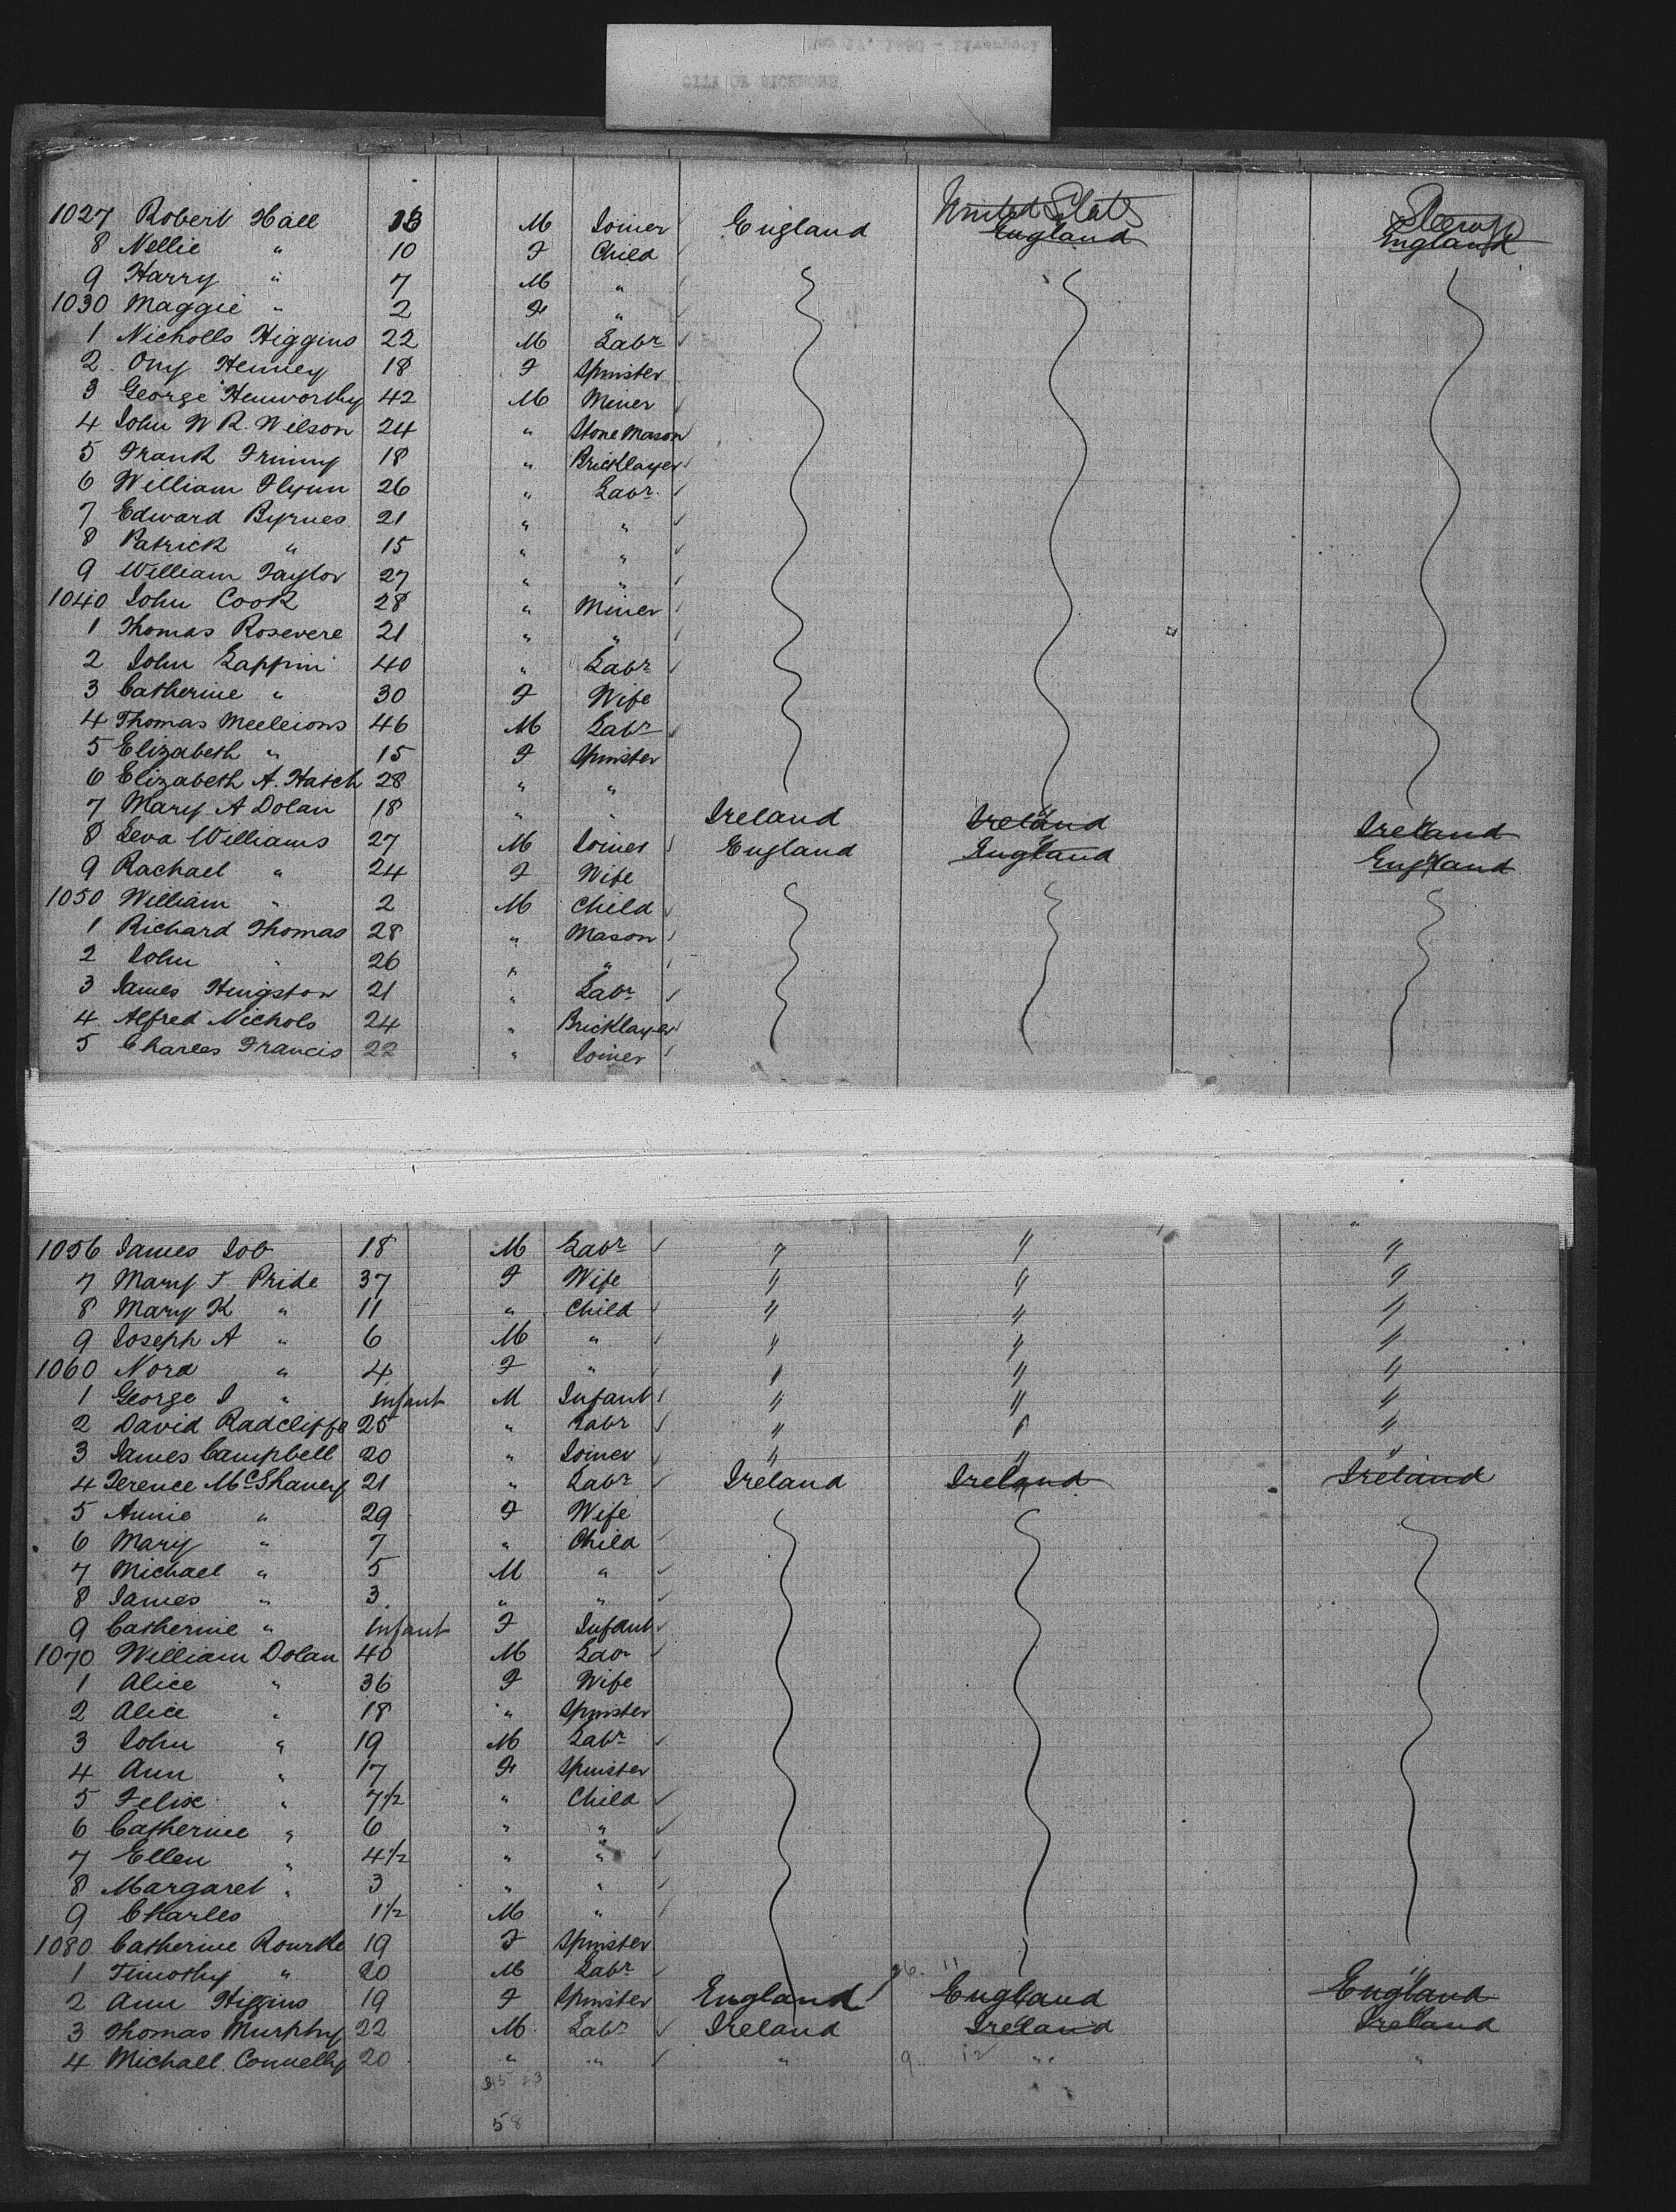 CITY OF RICHMOND
1027 Robert Hall M Joiner England United States England Steerage England
8 Nellie " 10 F Child
9 Harry " 7 M "
1030 Maggie " 2 F "
1 Nicholls Higgins 22 M Labr
2 Ony Henney 18 F Spinster
3 George Hemworthy 42 M Miner
4 John W R. Wilson 24 " Stone Mason
5 Frank 18 " Bricklayer
6 William Flynn 26 " Labr
7 Edward Byrnes 21 " "
8 Patrick " 15 " "
9 William Taylor 27 " "
1040 John Cook 28 " Miner
1 Thomas Rosevere 21 " "
2 John Lappin 40 " Labr
3 Catherine " 30 F Wife
4 Thomas 46 M Labr
5 Elizabeth " 15 F Spinster
6 Elizabeth A. Hatch 28 " "
7 Mary A Dolan 18 " " Ireland Ireland Ireland
8 Leva Williams 27 M Joiner England England England
9 Rachael " 24 F Wife
1050 William " 2 M Child
1 Richard Thomas 28 " Mason
2 John " 26 " "
3 James Hingston 21 " Labr
4 Alfred Nichols 24 " Bricklayer
5 Charles Francis 22 " Joiner
1056 James Job 18 M Labr " " "
7 Mary J. Pride 37 F Wife " " "
8 Mary K " 11 " Child " " "
9 Joseph A " 6 M " " " "
1060 Nora " 4 F " " " "
1 George J " Infant M Infant " " "
2 David Radcliffe 25 " Labr " " "
3 James Campbell 20 " Joiner " " "
4 Terence McShaney 21 " Labr Ireland Ireland Ireland
5 Annie " 29 F Wife
6 Mary " 7 " Child
7 Michael " 5 M "
8 James " 3 " "
9 Catherine " Infant F Infant
1070 William Dolan 40 M Labr
1 Alice " 36 F Wife
2 Alice " 18 " Spinster
3 John " 19 M Labr
4 Ann " 17 F Spinster
5 Felix " 7½ " Child
6 Catherine " 6 " "
7 Ellen " 4½ " "
8 Margaret " 3 " "
9 Charles 1½ M "
1080 Catherine Rourke 19 F Spinster
1 Timothy " 20 M Labr
2 Ann Higgins 19 F Spinster England England England
3 Thomas Murphy 22 M Labr Ireland Ireland Ireland
4 Michall Connelly 20 " " " " "
58